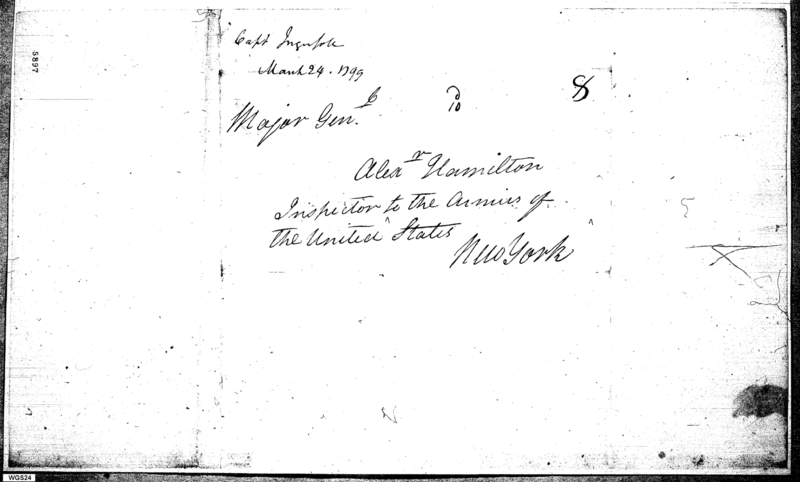 Capt Ingersoll
March 24. 1799
5897
8
Major Genl.
Alexr Hamilton
Inspector to the Armies of
the United States
New York
WGS24